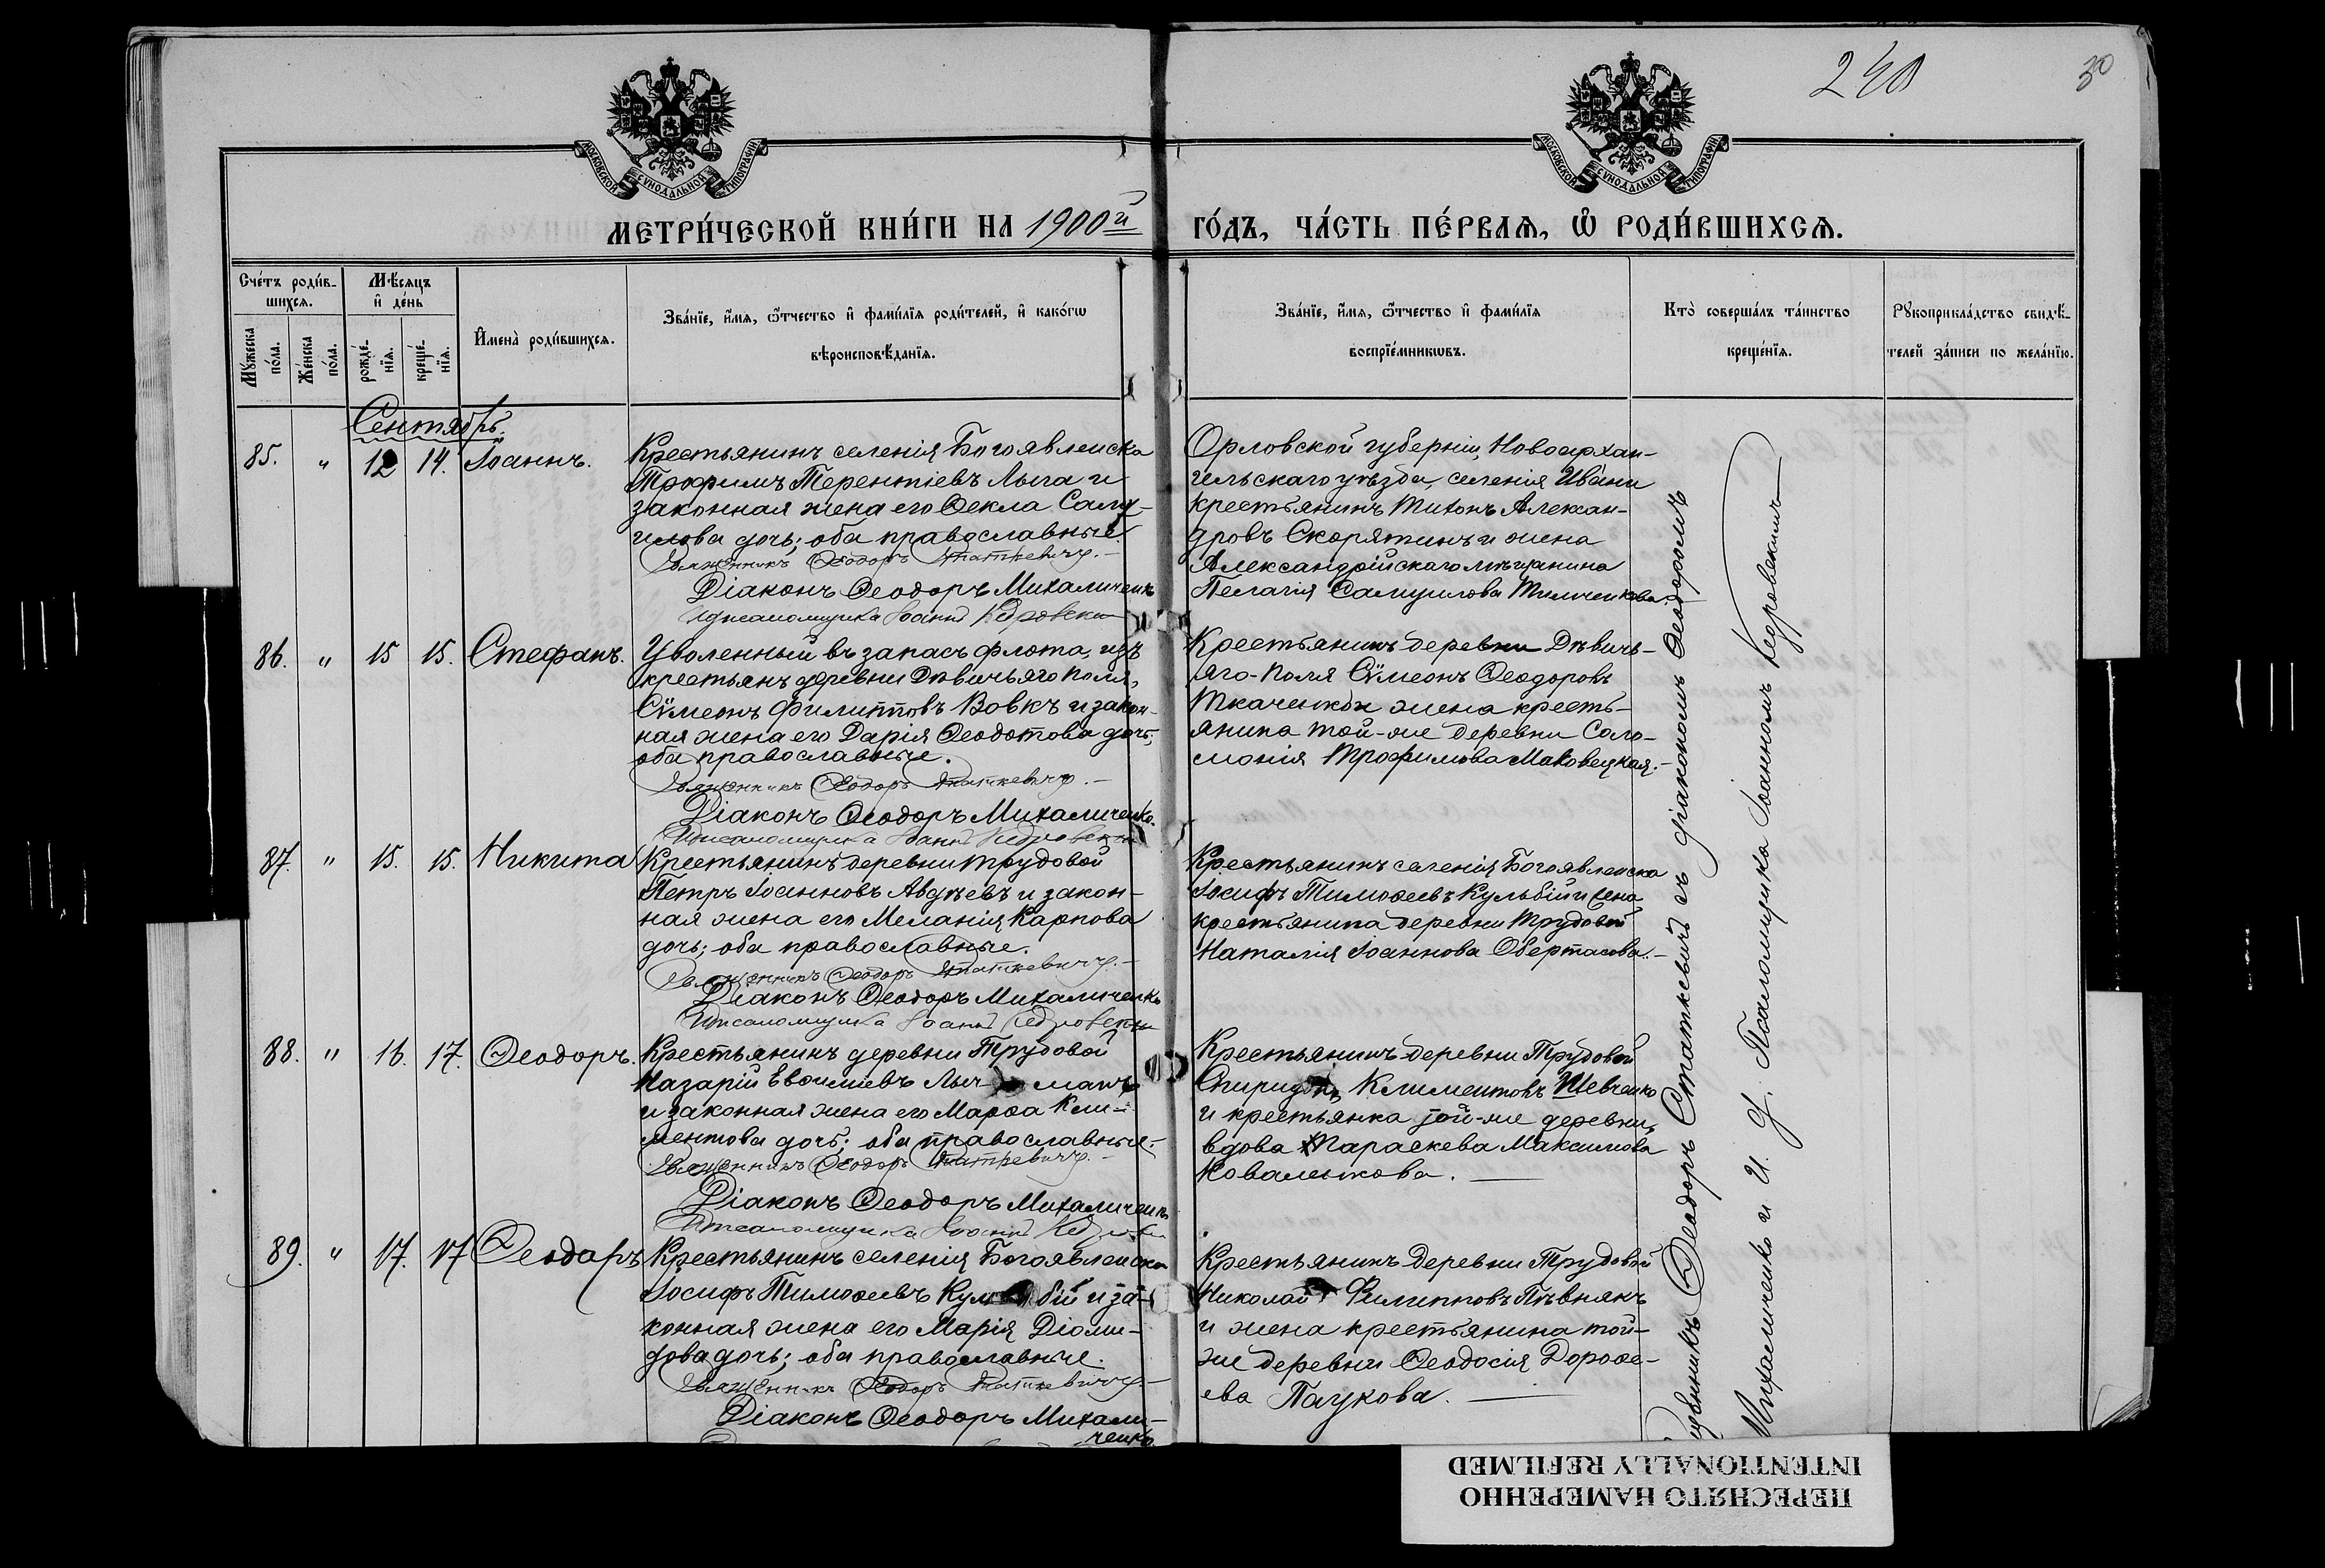 240
30
МОСКОВСКОЙ СѴНОДАЛЬНОЙ ТИПОГРАФІИ
МОСКОВСКОЙ СѴНОДАЛЬНОЙ ТИПОГРАФІИ
МЕТРИ́ЧЕСКОЙ КНИ́ГИ НА 1900й
ГО́ДЪ, ЧА́СТЬ ПЕ́РВАѦ, Ѽ РОДИ́ВШИХСѦ.
Сче́тъ роди́в-
шихсѧ.
Мꙋ́жеска
по́ла.
Же́нска
по́ла.
Мѣ́сѧцъ
и҆ де́нь
рожде́-
нїѧ.
креще́-
нїѧ.
И҆мена̀ роди́вшихсѧ.
Зва́нїе, и҆́мѧ, ѻ҆́тчество и҆ фами́лїѧ роди́телей, и҆ како́гѡ
вѣроисповѣ́данїѧ.
Зва́нїе, и҆́мѧ, ѻ҆́тчество и҆ фами́лїѧ
воспрїе́мникѡвъ.
Кто̀ соверша́лъ та́инство
креще́нїѧ.
Рꙋкоприкла́дство свидѣ́-
телей за́писи по жела́нїю.
Сентябрь.
85. " 12 14. Іоаннъ.
Крестьянинъ селенія Богоявленска
Трофимъ Терентіевъ Лыга и
законная жена его Ѳекла Саму-
илова дочь; оба православные
Священникъ Ѳеодоръ Статкевичъ.-
Діаконъ Ѳеодоръ Михаличенко
Псаломщика Іоаннъ Кедровскій
Орловской губерніи, Новоархан-
гельскаго уѣзда, селенія Ивани
крестьянинъ Тихонъ Алексан-
дровъ Скорятинъ и жена
Александрійскаго мѣщанина
Пелагія Самуилова Тимченкова.
86. " 15 15. Стефанъ.
Уволенный въ запасъ флота, изъ
крестьянъ деревни Дѣвичьяго поля,
Сѵмеонъ Филипповъ Вовкъ и закон-
ная жена его Дарія Ѳеодотова дочь,
оба православные.
Священникъ Ѳеодоръ Статкевичъ.-
Діаконъ Ѳеодоръ Михаличенко.
Псаломщика Іоаннъ Кедровскій
Крестьянинъ деревни Дѣвичь-
яго-Поля Сѵмеонъ Ѳеодоровъ
Ткаченко и жена кресть-
янина той-же деревни Соло-
монія Трофимова Маковецкая.-
87. " 15. 15. Никита
Крестьянинъ деревни Трудовой
Петръ Іоанновъ Авдѣевъ и закон-
ная жена его Меланія Карпова
дочь; оба православные.
Священникъ Ѳеодоръ Статкевичъ.-
Діаконъ Ѳеодоръ Михаличенко
Псаломщика Іоаннъ Кедровскій
Крестьянинъ селенія Богоявленска
Іосифъ Тимоѳеевъ Кульбій и жена
крестьянина деревни Трудовой
Наталія Іоаннова Обертасова.-
88. " 16. 17. Ѳеодоръ.
Крестьянинъ деревни Трудовой
Назарій Евѳиміевъ Лычманъ
и законная жена его Марѳа Кли-
ментова дочь: оба православные.-
Священникъ Ѳеодоръ Статкевичъ.-
Діаконъ Ѳеодоръ Михаличенко
Псаломщика Іоаннъ Кедровскій
Крестьянинъ деревни Трудовой
Спиридонъ Климентовъ Шевченко
и крестьянка той-же деревни,
вдова Параскева Максимова
Коваленкова.
89. " 17. 17 Ѳеодоръ
Крестьянинъ селенія Богоявленска
Іосифъ Тимоѳеевъ Кульбій и за-
конная жена его Марія Діоми-
дова дочь; оба православные.
Священникъ Ѳеодоръ Статкевичъ.-
Діаконъ Ѳеодоръ Михали-
ченко
Крестьянинъ деревни Трудовой
Николай Филипповъ Пѣвнякъ
и жена крестьянина той-
же деревни Ѳеодосія Дороѳе-
ева Паукова.
Ѳеодоръ Статкевичъ съ діакономъ Ѳеодоромъ
Михаличенко и И. д. Псаломщика Іоанномъ Кедровскимъ
ПЕРЕСНЯТО НАМЕРЕННО
INTENTIONALLY REFILMED